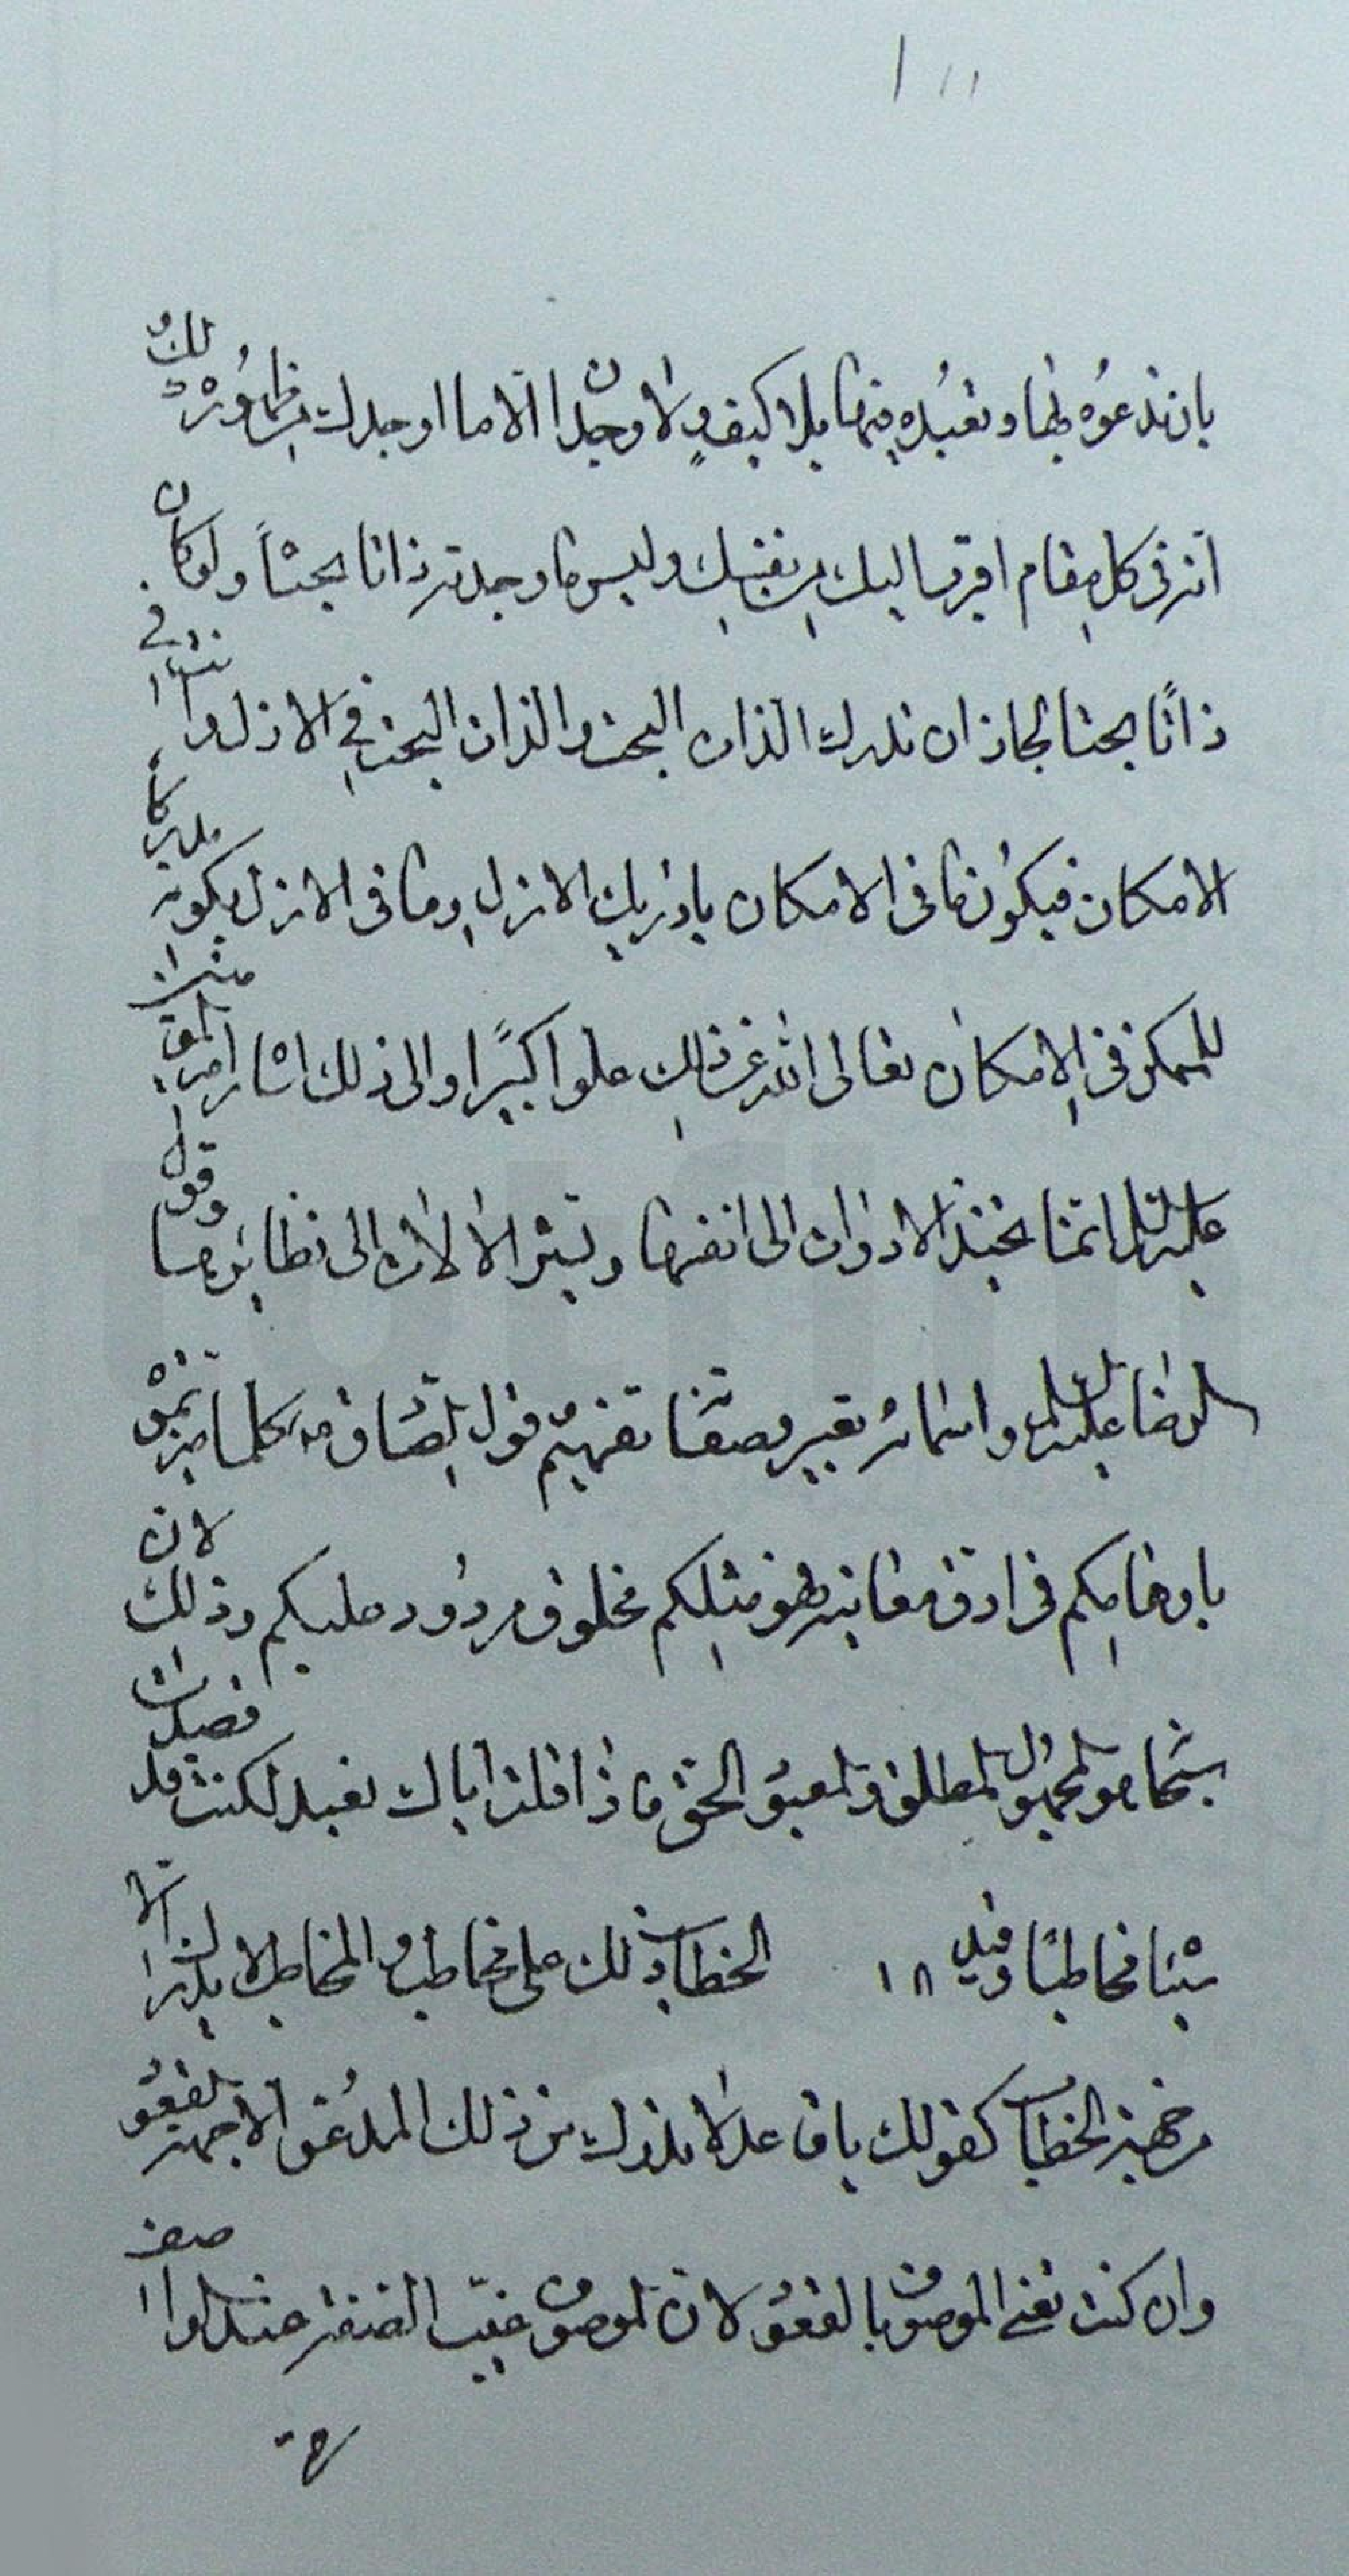 بان تدعوه بها وتعبده فيها بلا كيف ولا وجدان الا ما اوجدك من ظهوره لك
انه في كل مقام اقرب اليك من نفسك وليس ما وجدته ذاتا بحتاً ولو كان
ذاتًا بحتا لجاز ان تدرك الذات البحت والذات البحت في الازل وانت في
الامكان فيكون ما في الامكان يدرك الازل وما في الازل يكون مدركاً
للممكن في الامكان تعالى الله عن ذلك علوا كبيرًا والى ذلك اشار امير المؤمنين
عليه السلام انما تحد الادوات الى انفسها وتشير الالات الى نظائرها وقول
الرضا عليه السلام واسمائه تعبير وصفاته تفهيم وقول الصادق كلما ميزتموه
باوهامكم في ادق معانيه فهو مثلكم مخلوق مردود عليكم وذلك لان
سبحانه هو المجهول المطلق والمعبود الحق فاذا قلت اياك نعبد لكنت قد قصدت
شيئا مخاطبًا وقيد ١٨ الخطاب ذلك على مخاطب والمخاطب لا يدرك الا
من جهة الخطاب كقولك يا قاعد لا يدرك من ذلك المدعو الا جهة القعود
وان كنت تعني الموصوف بالقعود لان الموصوف غيب الصفة عند الواصف